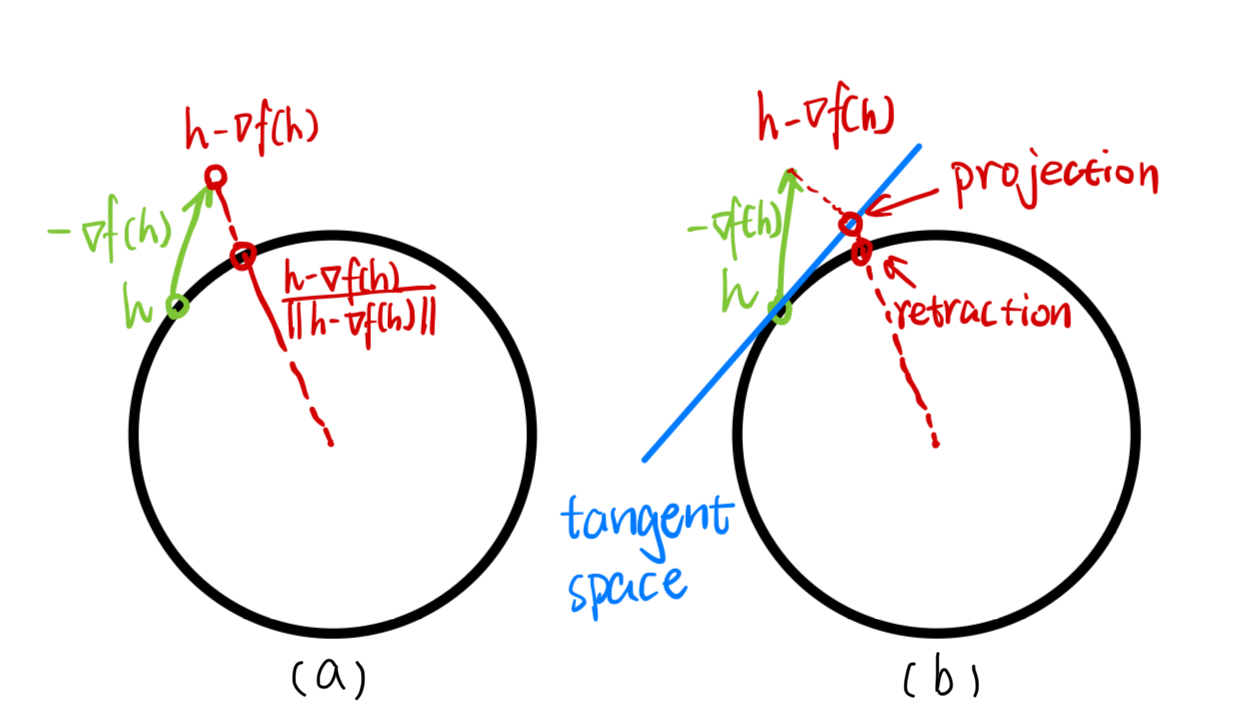 h-∇f(h)
-∇f(h)
h
h-∇f(h)
||h-∇f(h)||
(a)
h-∇f(h)
projection
-∇f(h)
h
retraction
tangent
space
(b)